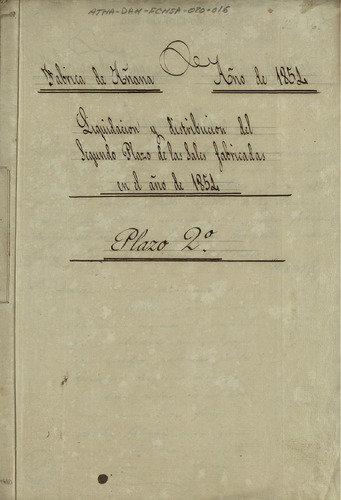 ATHA-DAH-ECNSA-070-016
Fabrica de Añana Año de 1851
Liquidacion y distribucion del
Segundo Plazo de las Sales fabricadas
en el año de 1851
Plazo 2º